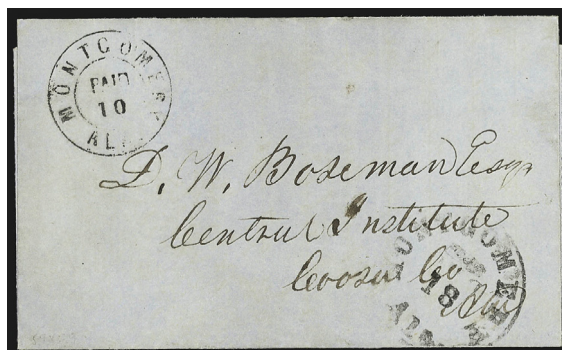 MONTGOMERY
PAID
10
ALA
D. W. Boseman Esqr
Central Institute
Coosa Co
Ala
18